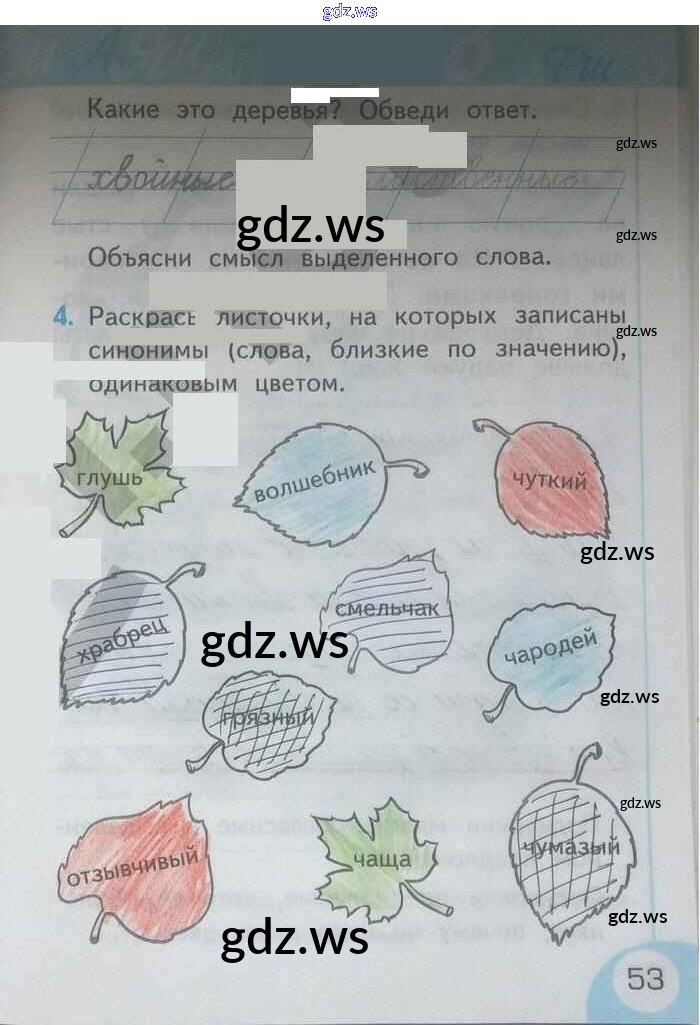 gdz.ws
Какие это деревья? Обведи ответ.
gdz.ws
хвойные лиственные
gdz.ws
gdz.ws
Объясни смысл выделенного слова.
4. Раскрась листочки, на которых записаны
gdz.ws
синонимы (слова, близкие по значению),
одинаковым цветом.
глушь
волшебник
чуткий
gdz.ws
храбрец
смельчак
чародей
gdz.ws
gdz.ws
грязный
gdz.ws
отзывчивый
чаща
чумазый
gdz.ws
gdz.ws
53